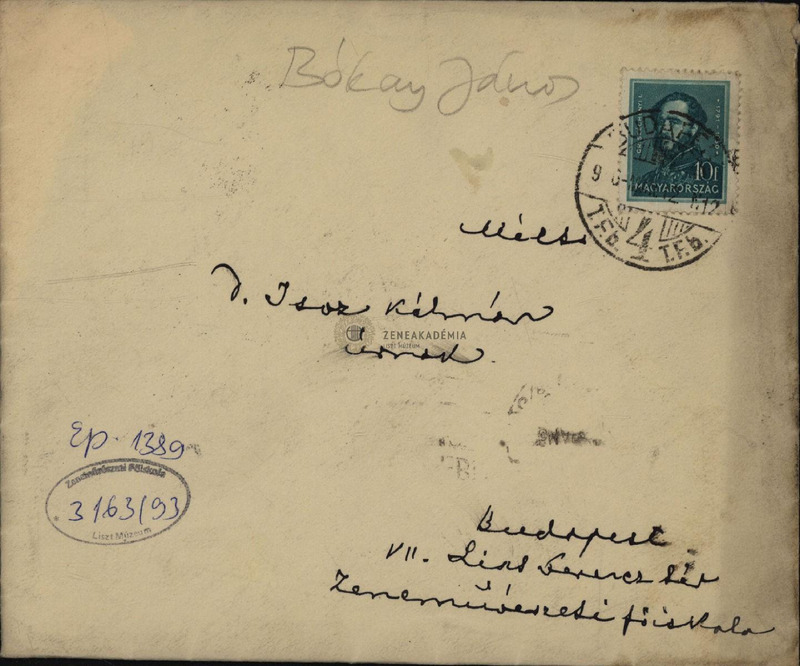 Bókay János
10f
MAGYARORSZÁG
BUDAPEST 4
T.F.b. 4 T.F.b.
Mélts
D. Isoz Kálmán
Úrnak.
ZENEAKADÉMIA
LISZT MÚZEUM
Ep. 1389
Zeneművészeti Főiskola
3163/93
Liszt Múzeum
Budapest
VII. Liszt Ferencz tér
Zeneművészeti főiskola